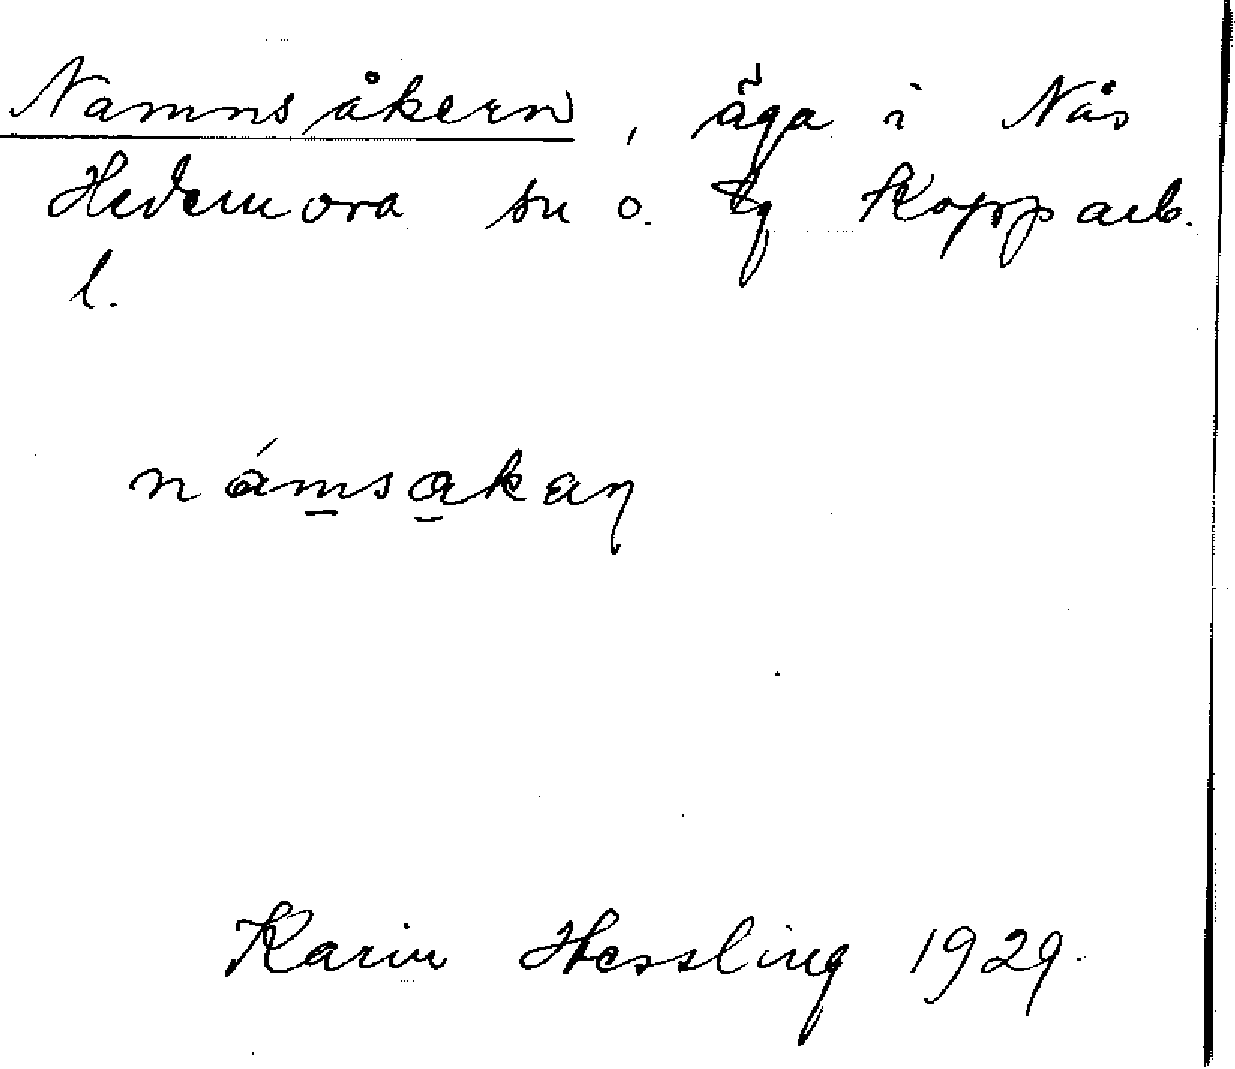 Namnsåkern, äga i Nås
Hedemora sn o. tg Kopparb.
l.
námsakan
Karin Hessling 1929.